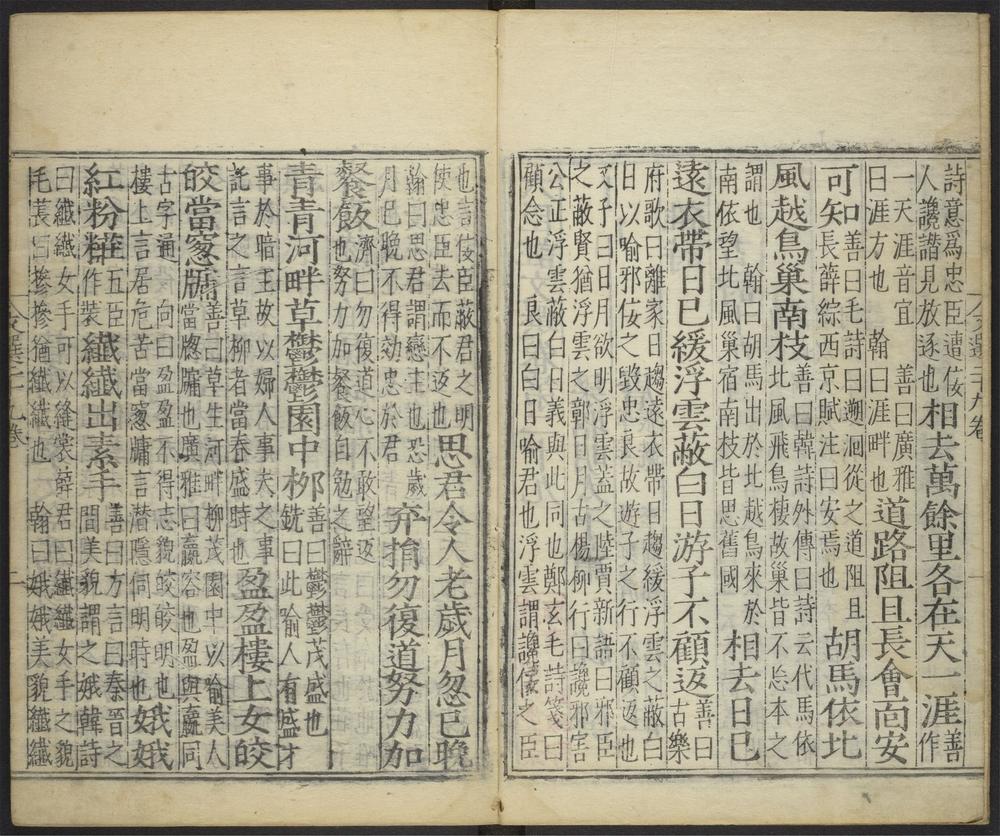 文選二十九卷
詩意爲忠臣遭佞人讒譖見放逐也相去萬餘里各在天一涯善作
一天涯音宜 善曰廣雅曰涯方也 翰曰涯畔也道路阻且長會面安
可知善曰毛詩曰遡洄從之道阻且長薛綜西京賦注曰安焉也胡馬依北
風越鳥巢南枝善曰韓詩外傳曰詩云代馬依北風飛鳥棲故巢皆不忘本之
謂也 翰曰胡馬出於北越鳥來於南依望北風巢宿南枝皆思舊國相去日已
遠衣帶日已緩浮雲蔽白日游子不顧返善曰古樂
府歌曰離家日趨遠衣帶日趨緩浮雲之蔽白
日以喻邪佞之毀忠良故遊子之行不顧返也
文子曰日月欲明浮雲蓋之陸賈新語曰邪臣
之蔽賢猶浮雲之鄣日月古楊柳行曰讒邪害
公正浮雲蔽白日義與此同也鄭玄毛詩箋曰
顧念也 良曰白日喻君也浮雲謂讒佞之臣
也言佞臣蔽君之明使忠臣去而不返也思君令人老歲月忽已晚
翰曰思君謂戀主也恐歲月已晚不得効忠於君弃捐勿復道努力加
餐飯濟曰勿復道心不敢望返也努力加餐飯自勉之辭
青青河畔草鬱鬱園中柳善曰鬱鬱茂盛也銑曰此喻人有盛才
事於暗主故以婦人事夫之事託言之言草柳者當春盛時也盈盈樓上女皎
皎當窻牖善曰草生河畔柳茂園中以喻美人當牎牖也廣雅曰嬴容也盈與嬴同
古字通 向曰盈盈不得志貌皎皎明也樓上言居危苦當窻牖言潛隱伺明時也娥娥
紅粉糚五臣作裝纖纖出素手善曰方言曰秦晉之間美貌謂之娥韓詩
曰纖纖女手可以縫裳薛君曰纖纖女手之貌
毛萇曰摻摻猶纖纖也 翰曰娥娥美貌纖纖
文選二十九卷 二